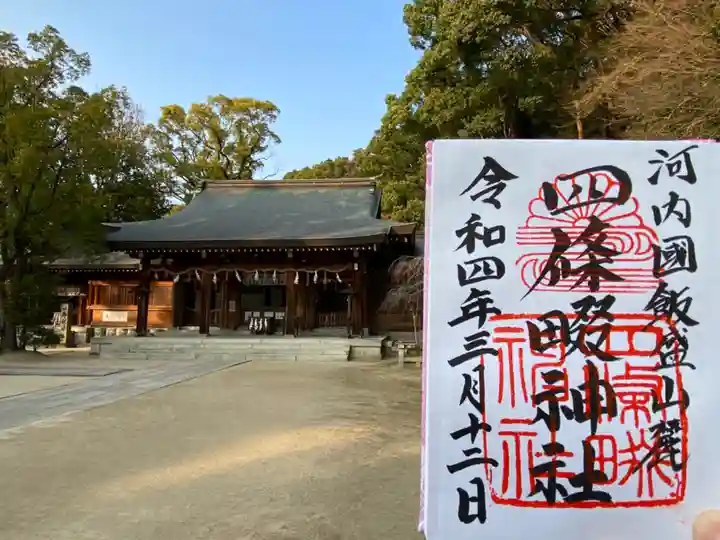 河内國飯盛山麓
四條畷神社
令和四年三月十二日
四條畷
神社